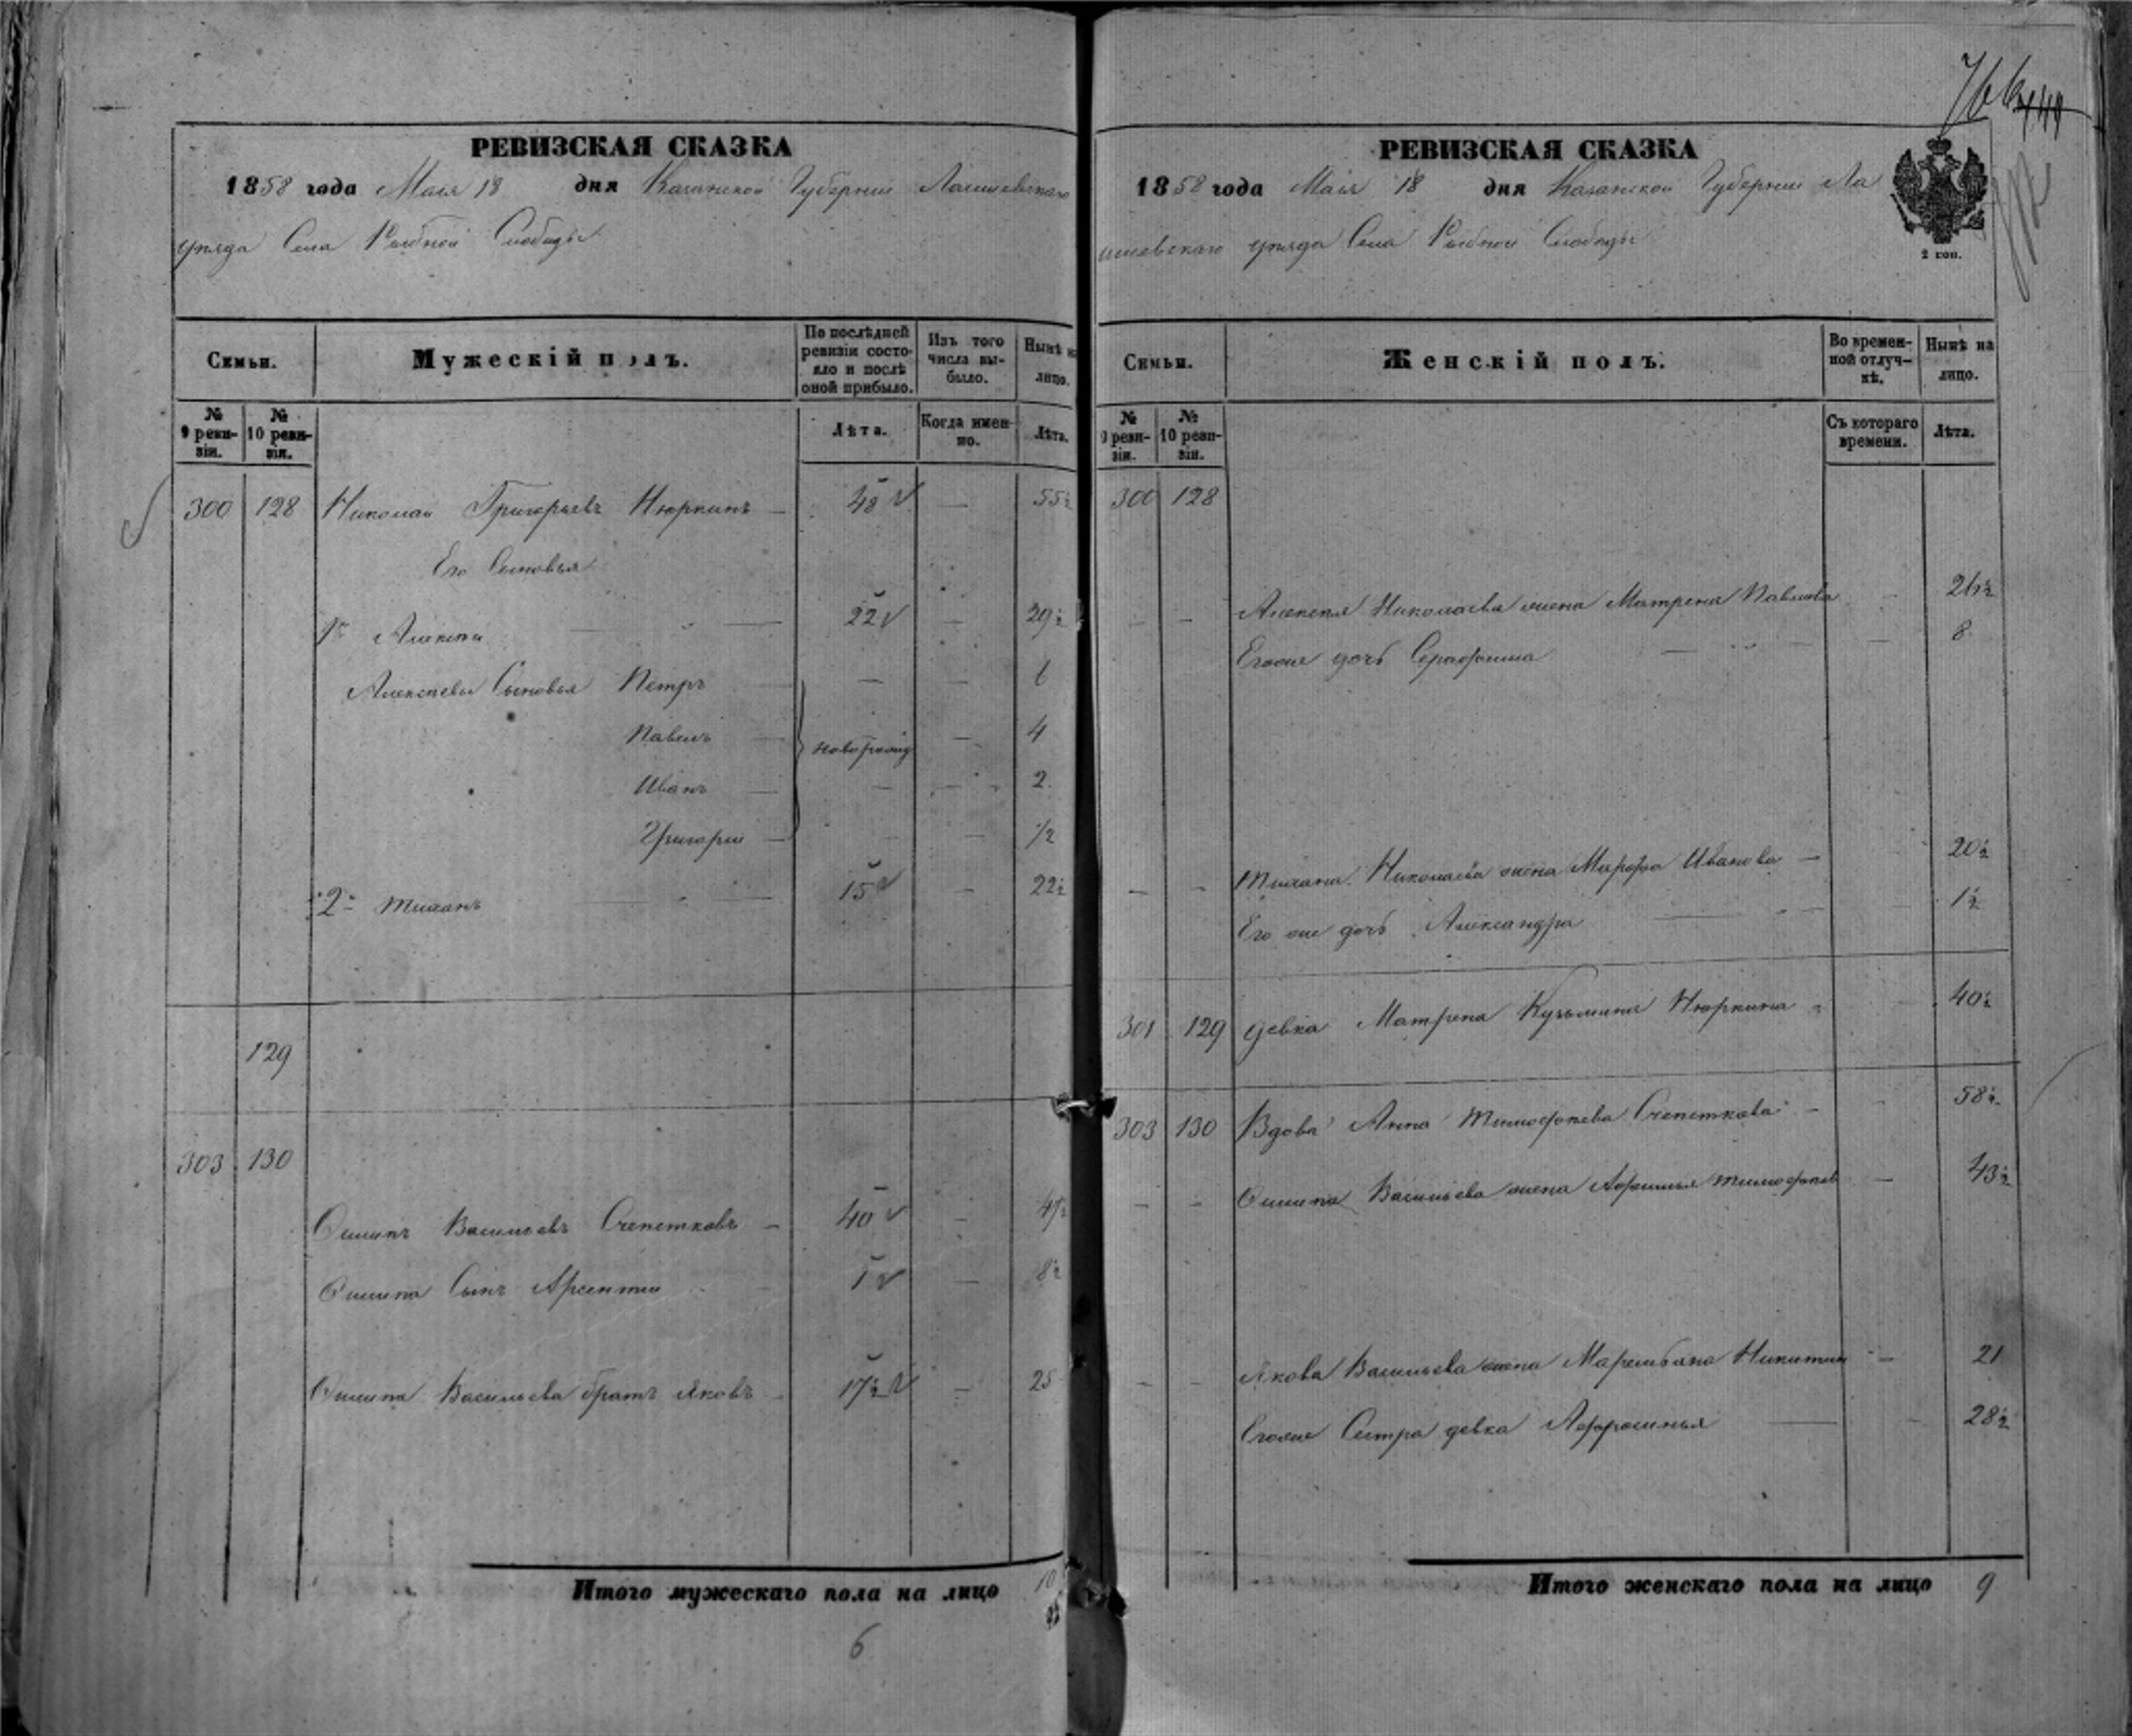 РЕВИЗСКАЯ СКАЗКА
1858 года Мая 18 дня Казанской Губернии Лаишевскаго
уѣзда Села Рыбной Слободы
Семьи.
Мужескій полъ.
По послѣдней ревизіи состояло и послѣ оной прибыло.
Изъ того числа выбыло.
Нынѣ на лицо.
№ 9 ревизіи.
№ 10 ревизіи.
Лѣта.
Когда именно.
Лѣта.
300 128 Николай Григорьевъ Нюркинъ — 48 — 55½
Его Сыновья
1й Алексѣй — 22 — 29½
Алексѣевы Сыновья Петръ — — —
Павелъ — новорожд — 4
Иванъ — — — 2
Григорий — — — ½
2й Тиханъ — 15 — 22½
129
303 130
Осипъ Васильевъ Счепетковъ — 40 — 47½
Осипа Сынъ Арсентий — 1 — 8½
Осипа Васильева братъ Яковъ — 17½ — 25
Итого мужескаго пола на лицо 10
6
766
449
РЕВИЗСКАЯ СКАЗКА
1858 года Мая 18 дня Казанской Губернии Ла
ишевскаго уѣзда Села Рыбной Слободы
2 коп.
Семьи.
Женскій полъ.
Во временной отлучкѣ.
Нынѣ на лицо.
№ 9 ревизіи.
№ 10 ревизіи.
Съ котораго времени.
Лѣта.
300 128
Алексѣя Николаева жена Матрена Павлова — 26½
Егоже дочь Серафима — — 8
Тихана Николаева жена Марфа Иванова — 20½
Его же дочь Александра — 1½
301 129 девка Матрена Кузьмина Нюркина 40½
303 130 Вдова Анна Тимофѣева Счепеткова — 58½
Осипа Васильева жена Афимья Тимофѣев — 43½
Якова Васильева жена Никитин — 21
Егоже Сестра девка Аффросинья — 28½
Итого женскаго пола на лицо 9